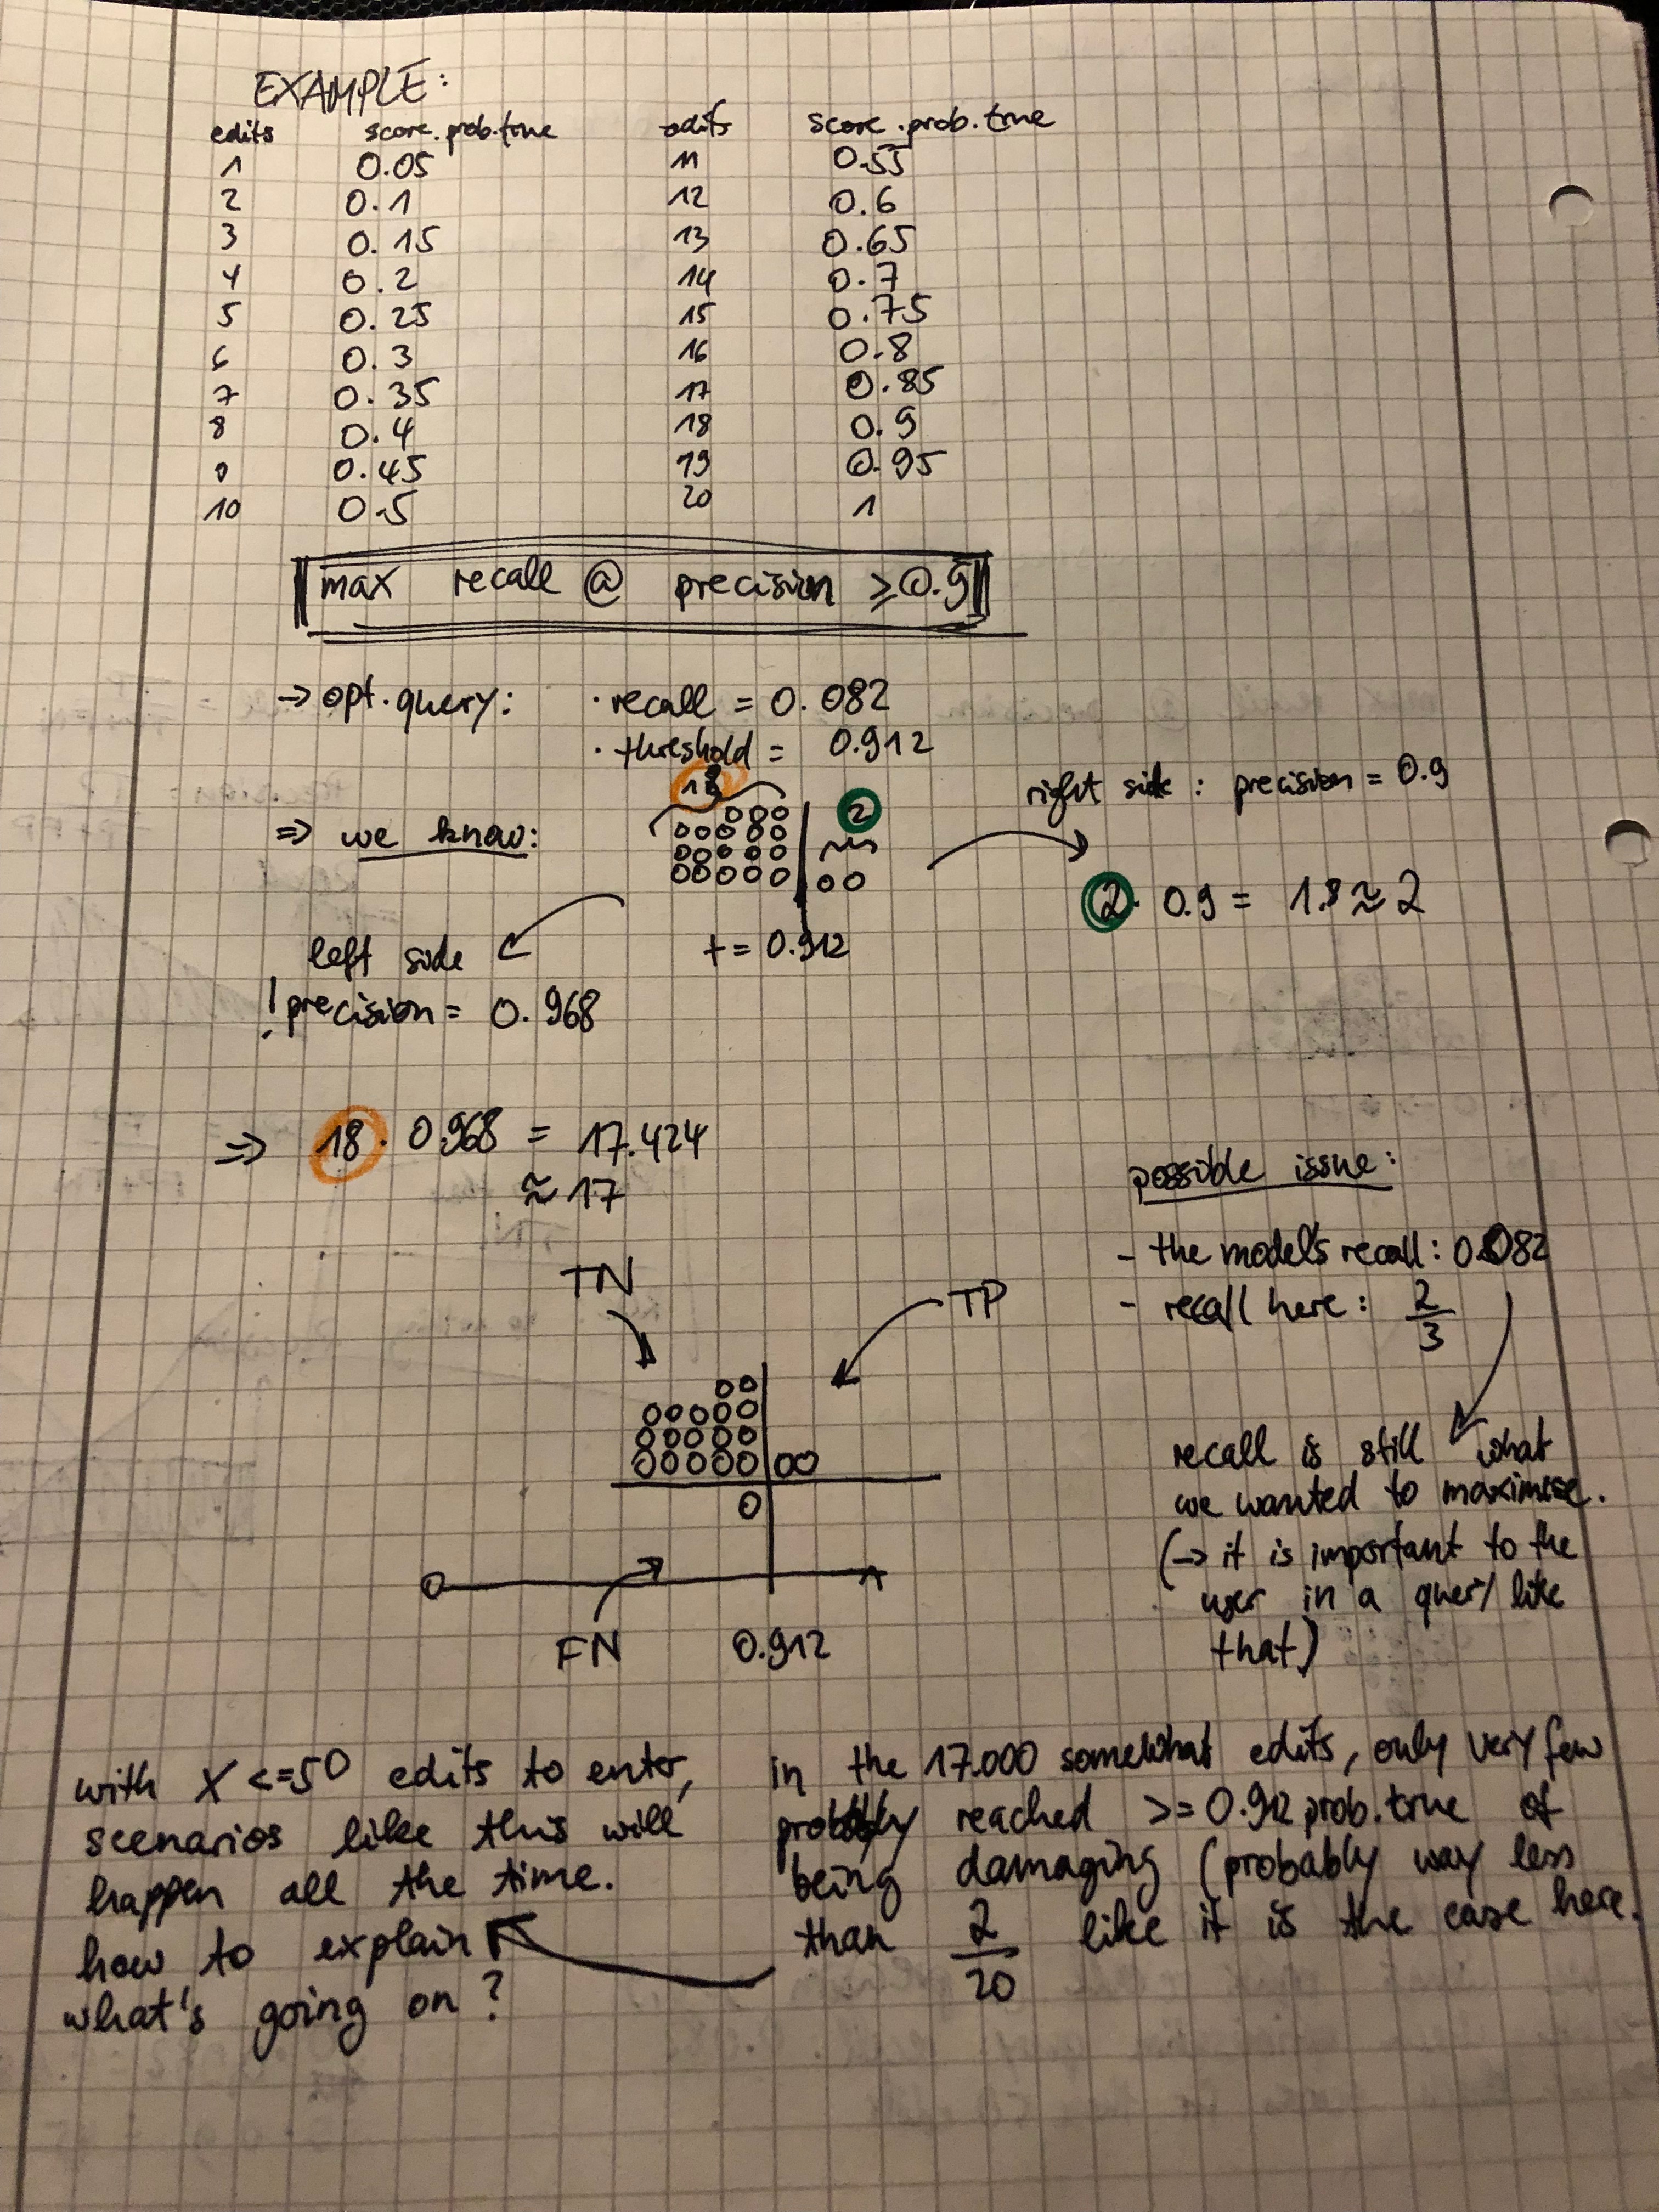 EXAMPLE:
edits score.prob.true edits score.prob.true
1 0.05 11 0.55
2 0.1 12 0.6
3 0.15 13 0.65
4 0.2 14 0.7
5 0.25 15 0.75
6 0.3 16 0.8
7 0.35 17 0.85
8 0.4 18 0.9
9 0.45 19 0.95
10 0.5 20 1
max recall @ precision ≥0.9
→ opt.query: · recall = 0.082
· threshold = 0.912
18
2
right side : precision = 0.9
⇒ we know:
2 · 0.9 = 1.8 ≈ 2
t = 0.912
left side
! precision = 0.968
⇒ 18 · 0.968 = 17.424
≈ 17
possible issue:
- the model's recall: 0.082
- recall here: 2/3
TN
TP
recall is still what
we wanted to maximise.
(→ it is important to the
user in a query like
that)
0 1
FN 0.912
with X <=50 edits to enter,
scenarios like this will
happen all the time.
how to explain
what's going on?
in the 17.000 somewhat edits, only very few
probably reached >= 0.912 prob.true of
being damaging (probably way less
than 2/20 like it is the case here.